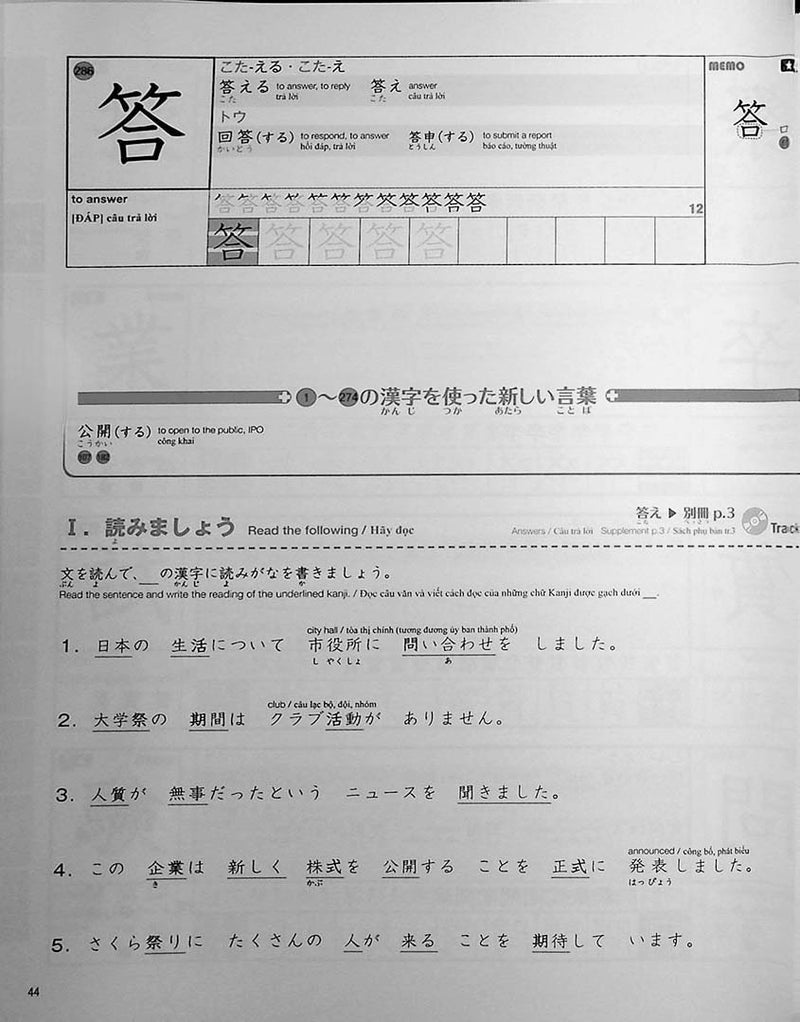 286
答
こた-える・こた-え
答える to answer, to reply 答え answer
こた trả lời こた câu trả lời
トウ
回答(する) to respond, to answer 答申(する) to submit a report
かいとう hỏi đáp, trả lời とうしん báo cáo, tường thuật
MEMO
答
口
to answer
[ĐÁP] câu trả lời
12
答 答 答 答 答
1～274の漢字を使った新しい言葉
かんじ つか あたら ことば
公開(する) to open to the public, IPO
こうかい công khai
107 182
I. 読みましょう Read the following / Hãy đọc
よ
答え ▶ 別冊 p.3
こた べっさつ
Answers / Câu trả lời Supplement p.3 / Sách phụ bản tr.3
Track
文を読んで、__の漢字に読みがなを書きましょう。
ぶん よ かんじ よ か
Read the sentence and write the reading of the underlined kanji. / Đọc câu văn và viết cách đọc của những chữ Kanji được gạch dưới __.
city hall / tòa thị chính (tương đương ủy ban thành phố)
1. 日本の 生活について 市役所に 問い合わせを しました。
しやくしょ あ
club / câu lạc bộ, đội, nhóm
2. 大学祭の 期間は クラブ活動が ありません。
3. 人質が 無事だったという ニュースを 聞きました。
announced / công bố, phát biểu
4. この 企業は 新しく 株式を 公開する ことを 正式に 発表しました。
き かぶ はっぴょう
5. さくら祭りに たくさんの 人が 来る ことを 期待して います。
44